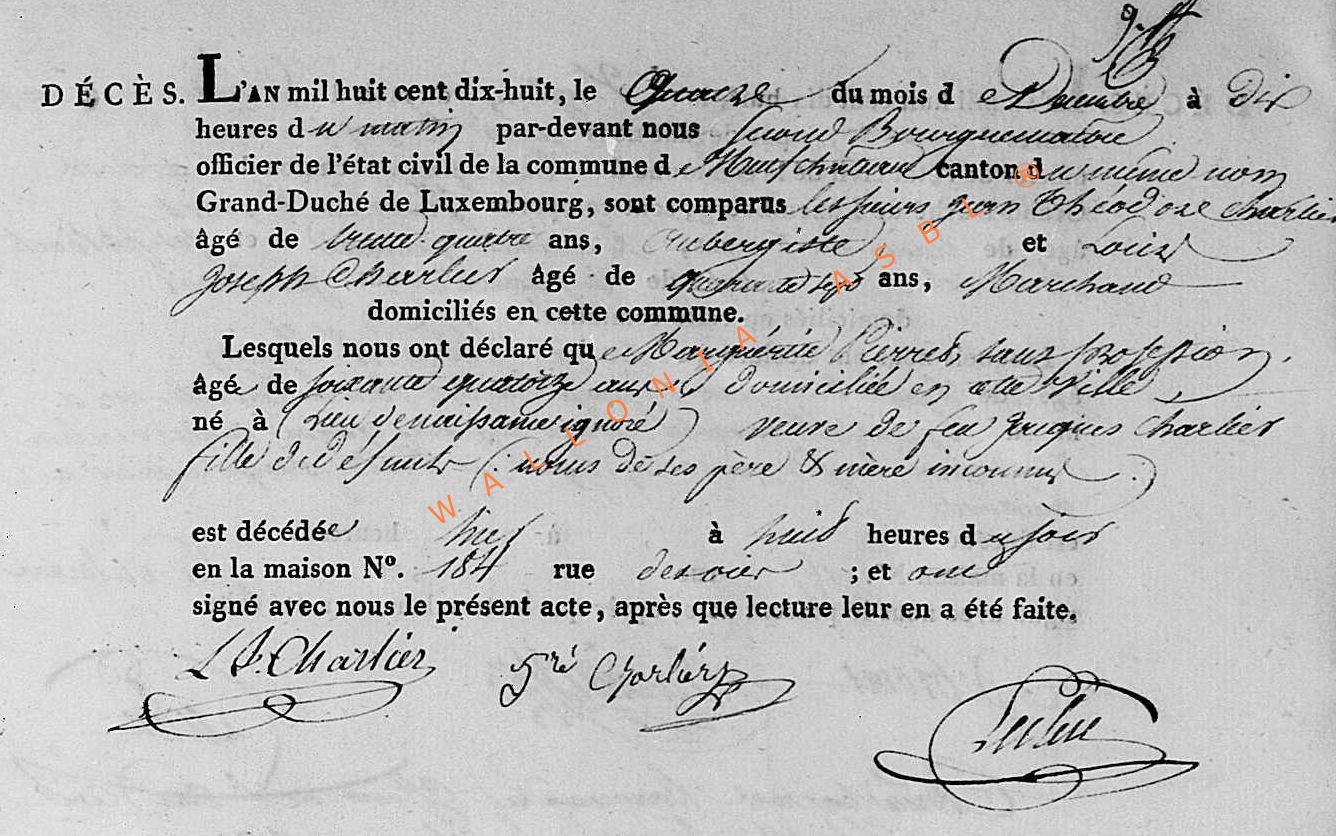 DÉCÈS. L'AN mil huit cent dix-huit, le Quinze du mois de Decembre à Dix
heures du matin par-devant nous second Bourguemaitre
officier de l'état civil de la commune de Neufchateau canton du même nom
Grand-Duché de Luxembourg, sont comparus les sieurs Jean Théodore Charlier
âgé de trente quatre ans, Aubergiste et Louis
Joseph Charlier âgé de quarante sept ans, Marchand
domiciliés en cette commune.
Lesquels nous ont déclaré que Marguérite Pierret, sans profession,
âgée de soixante quatorze ans domiciliée en cette Ville
né à (Lieu de naissance ignoré) veuve de feu Jacques Charlier
fille de défunts (: noms de ses père & mère inconnus :)
est décédée hier à huit heures du soir
en la maison Nº. 184 rue ; et ont
signé avec nous le présent acte, après que lecture leur en a été faite.
L J. Charlier Charlier
WALLONIA ASBL ®